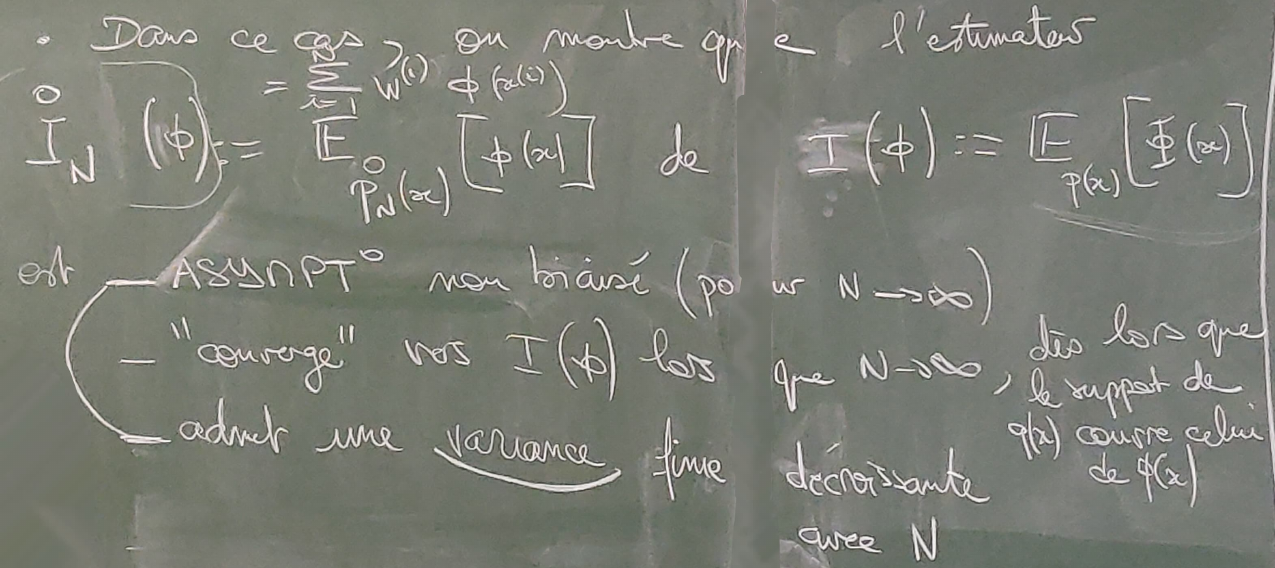 • Dans ce cas, on montre que l'estimateur
= ∑_{i=1}^{N} w^{(i)} φ(x^{(i)})
I̊_N (φ) := E_{p̊_N(x)} [φ(x)] de I(φ) := E_{p(x)} [Φ(x)]
est — ASYMPT° non biaisé (pour N → ∞)
— "converge" vers I(φ) lors que N → ∞, dès lors que
le support de
q(x) couvre celui
de φ(x)
— admet une variance finie décroissante
avec N